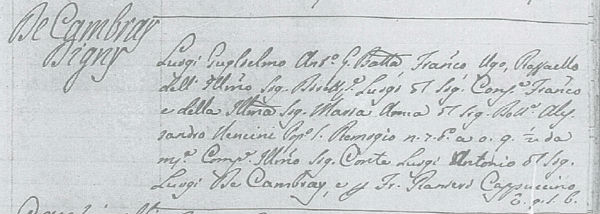 De Cambray
Digny
Luigi Guglielmo Ant.º G. Batt.ª Franc.º Ugo, Raffaello
dell' Illmo Sig. Luigi d Sig. Franc.º
e della Illma Sig. Maria Anna d Sig. Dott.e Ales-
sandro Nencini S. Remigio n. 7 a o. 9 ½ da
m.e Comp.e Illmo Sig. Conte Luigi Antonio d Sig.
Luigi De Cambray, e Fr. Ranieri Cappuccino